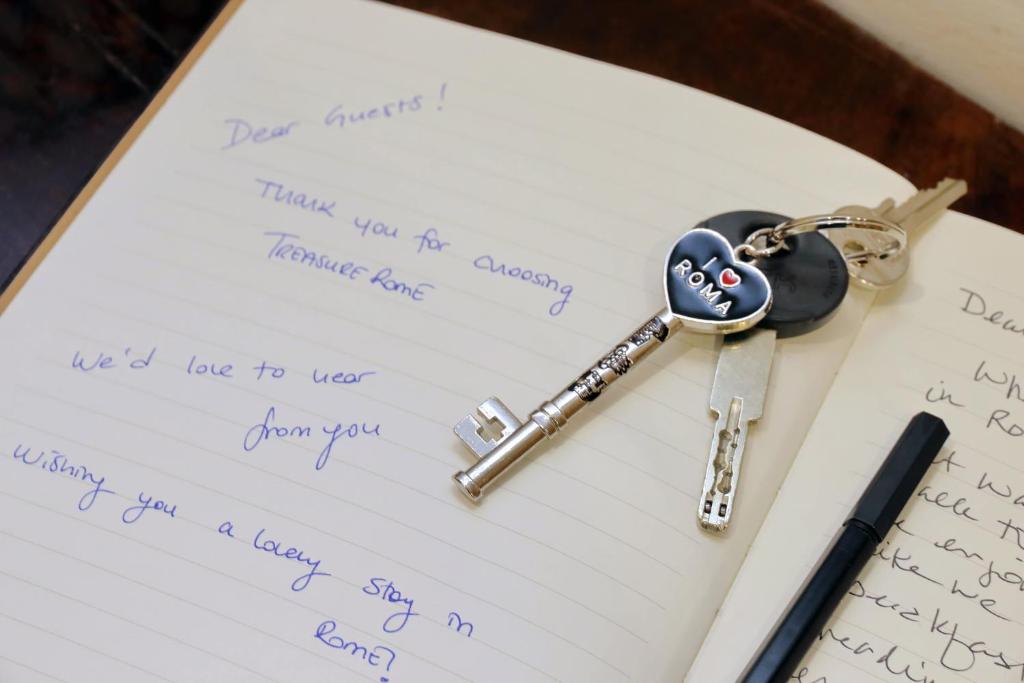 Dear Guests!
Thank you for choosing
TREASURE ROME
We'd love to hear
from you
Wishing you a lovely stay in
Rome!
I
ROMA
Dear
Wh
in Ro
t wa
alk t
enjo
like we
breakfas
headin